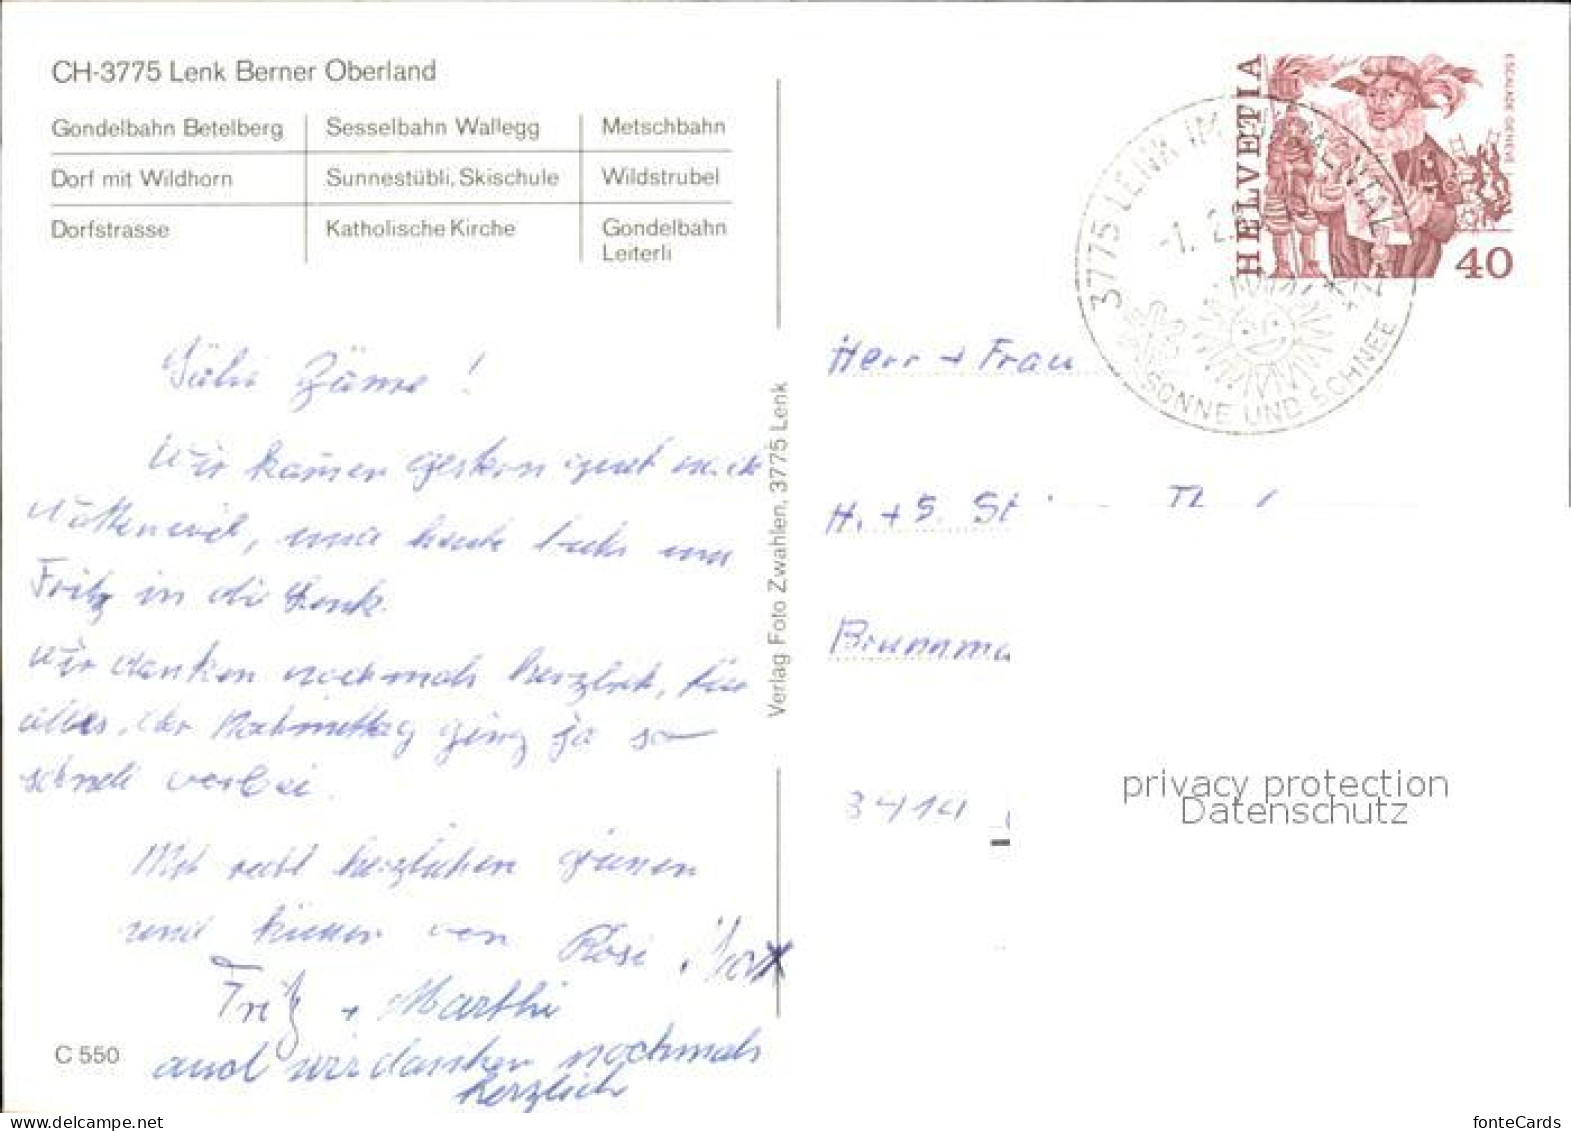 CH-3775 Lenk Berner Oberland
Gondelbahn Betelberg Sesselbahn Wallegg Metschbahn
Dorf mit Wildhorn Sunnestübli, Skischule Wildstrubel
Dorfstrasse Katholische Kirche Gondelbahn
Leiterli
Zäme !
Wir kamen gestern gut nach
Wattenwil, und heute fuhr uns
Fritz in di Lenk.
Wir danken nochmals herzlich, für
alles, der Nachmittag ging ja so
schnell vorbei.
Mit recht herzlichen grüssen
und küssen von Rösi
Fritz + Marthi
auch wir danken nochmals
herzlich
C 550
Verlag Foto Zwahlen, 3775 Lenk
HELVETIA
ESCALADE GENÈVE
40
3775 LENK IM SIMMENTAL
-1. 2.
SONNE UND SCHNEE
Herr + Frau
H. + S. St
Brunnma
3414
privacy protection
Datenschutz
www.delcampe.net
fonteCards